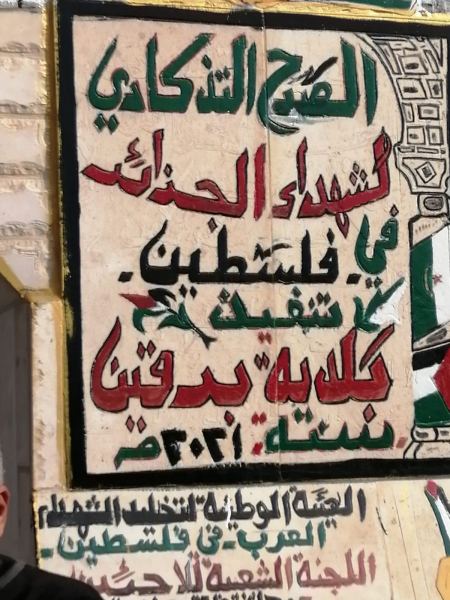 الصرح التذكاري
لشهداء الجزائر
في فلسطين.
تنفيذ
بلدية برقين
سنة: ٢٠٢١م
الهيئة الوطنية لتخليد الشهداء
العرب - في فلسطين -
اللجنة الشعبية للاجئين